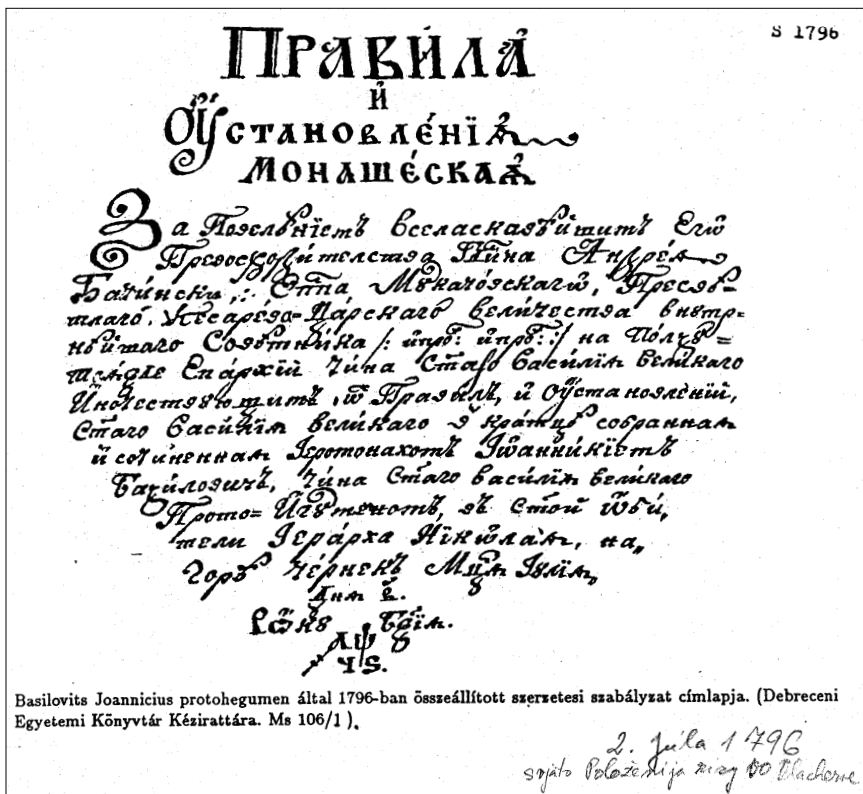 S 1796
ПРАВИ́ЛА҆
И҆
Оу҆СТАНОВЛЕ́НЇѦ҆
МОНАШЕ́СКАѦ҆
За Повелѣнїемъ Вселаскавѣ́йшимъ Егѡ̀
Превосходи́телства Па́на Андре́а
Бачи́нски, Епⷭ҇па Мꙋкачо́вскагѡ, Пресвѣ-
тлагѡ̀ Кесарево-Ца́рскагѡ вели́чества внꙋтр-
нѣ́йшаго Совѣ́тника /: и҆прѡ҇: и҆прѡ҇: :/ на По́лзꙋ =
Епа́рхїй Чи́на Ст҃а́гѡ Васи́лїѧ вели́каго
И҆ночествꙋ́ющимъ, ѿ Пра́вилъ, и҆ Оу҆становле́нїй,
Ст҃а́гѡ Васи́лїѧ вели́каго в кра́тцѣ собраннаѧ
и҆ сочиненнаѧ І҆еромонахомъ І҆ѡанни́кїемъ
Бази́ловичъ, Чи́на Ст҃а́гѡ Васи́лїѧ вели́каго
Прото= И҆гꙋ́меномъ, в Ст҃о́й Ѡ҆би́,
тели І҆ера́рха Нїкѡла́ѧ, на,,
Горѣ̀ Че́рнекъ Мц҇ѧ І҆ꙋ́лїѧ,
Днѧ в҃.
Рѡ́кꙋ Бж҃їѧ.
АѰ
ЧЅ.
Basilovits Joannicius protohegumen által 1796-ban összeállított szerzetesi szabályzat címlapja. (Debreceni
Egyetemi Könyvtár Kézirattára. Ms 106/1 ).
2. Júla 1796
svjato Položenija rizy VO Vlacherne